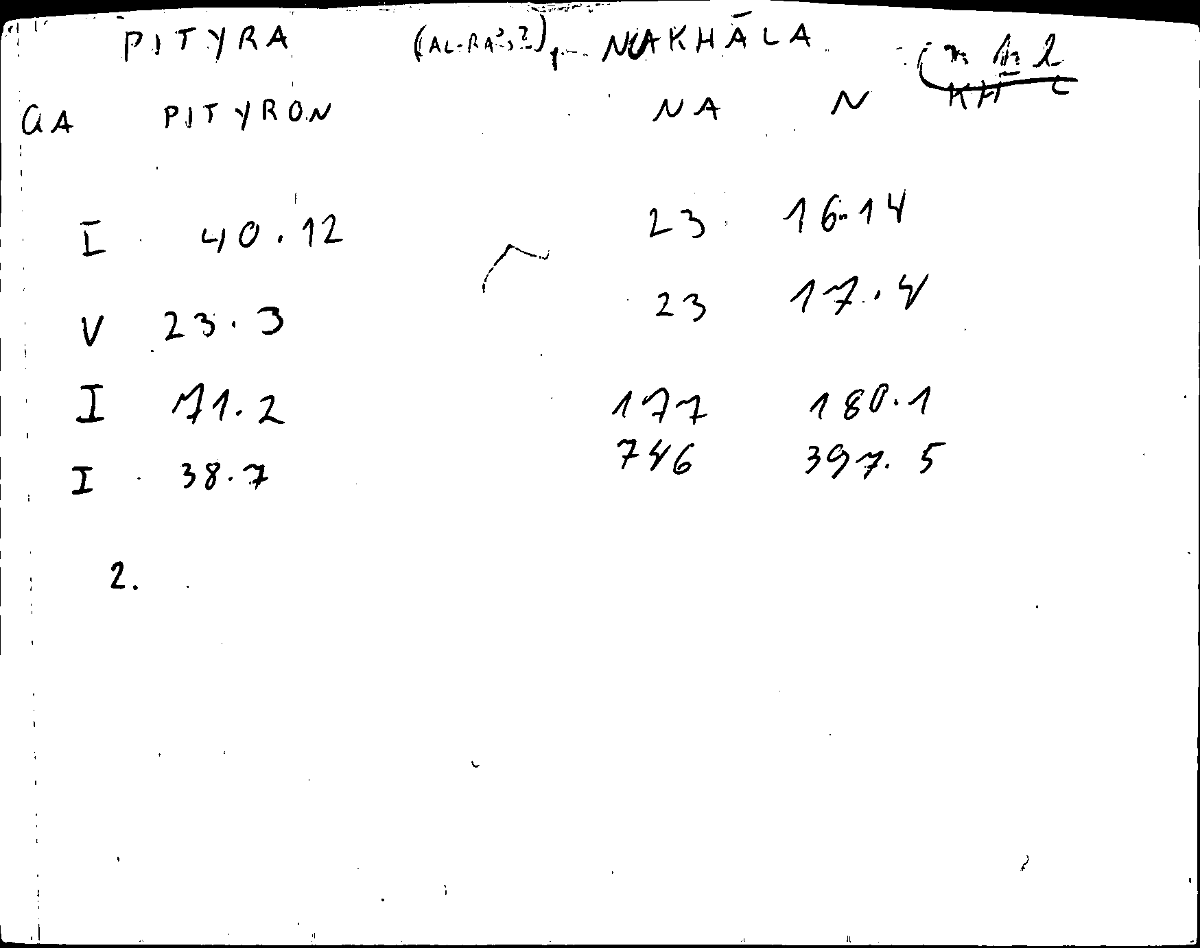 PITYRA (AL-RA'S?) NAKHĀLA (n ḫ l
GA PITYRON NA N KH L
I 40.12 23 16.14
V 23.3 23 17.4
I 71.2 177 180.1
I 38.7 746 397.5
2.